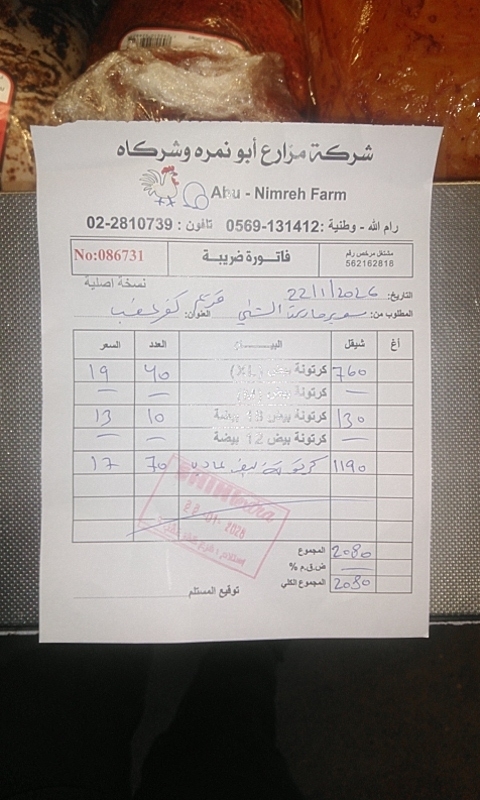 شركة مزارع أبو نمره وشركاه
Abu - Nimreh Farm
رام الله - وطنية :131412-0569 تلفون : 2810739-02
مشتغل مرخص رقم
562162818
فاتورة ضريبة
No:086731
نسخة اصلية
التاريخ: 22/1/2026
المطلوب من: سوبرماركت الشني العنوان: كفر عقب
أغ شيقل البيــــــان العدد السعر
760 كرتونة بيض (XL) 40 19
— كرتونة بيض — —
130 كرتونة بيض 18 بيضة 10 13
— كرتونة بيض 12 بيضة — —
1190 كرتونة 70 17
المجموع 2080
ض.ق.م % —
المجموع الكلي 2080
توقيع المستلم